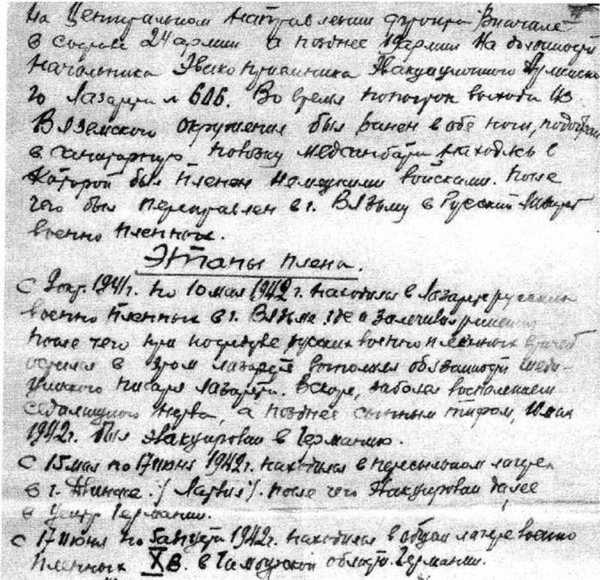 На Центральном направлении фронта вначале
в составе 24 армии а позднее 19 армии на должности
начальника Эвакоприемника Эвакуационного
го Лазарета № 606. Во время попыток выхода из
Вяземского окружения был ранен в обе ноги, подобран
в санитарную повозку медсанбата находясь в
которой был пленен немецкими войсками. После
чего был переправлен в г. Вязьму в Русский Лазарет
военно пленных.
Этапы плена.
С 9 окт. 1941г. по 10 мая 1942 г. находился в Лазарете русских
военно пленных в г. Вязьма где и залечивал ранение
после того при посредстве русских военно пленных врачей
остался в этом лазарете выполнял обязанности меди-
цинского писаря лазарета. Вскоре, заболел воспалением
седалищного нерва, а позднее сыпным тифом, 10 мая
1942г. был эвакуирован в Германию.
С 15 мая по 17 июня 1942г. находился в пересыльном лагере
в г. Двинске /Латвия/. после чего эвакуирован далее
в центр Германии.
С 17 июня по 5 августа 1942г. находился в общем лагере военно
пленных XB. в области Германии.